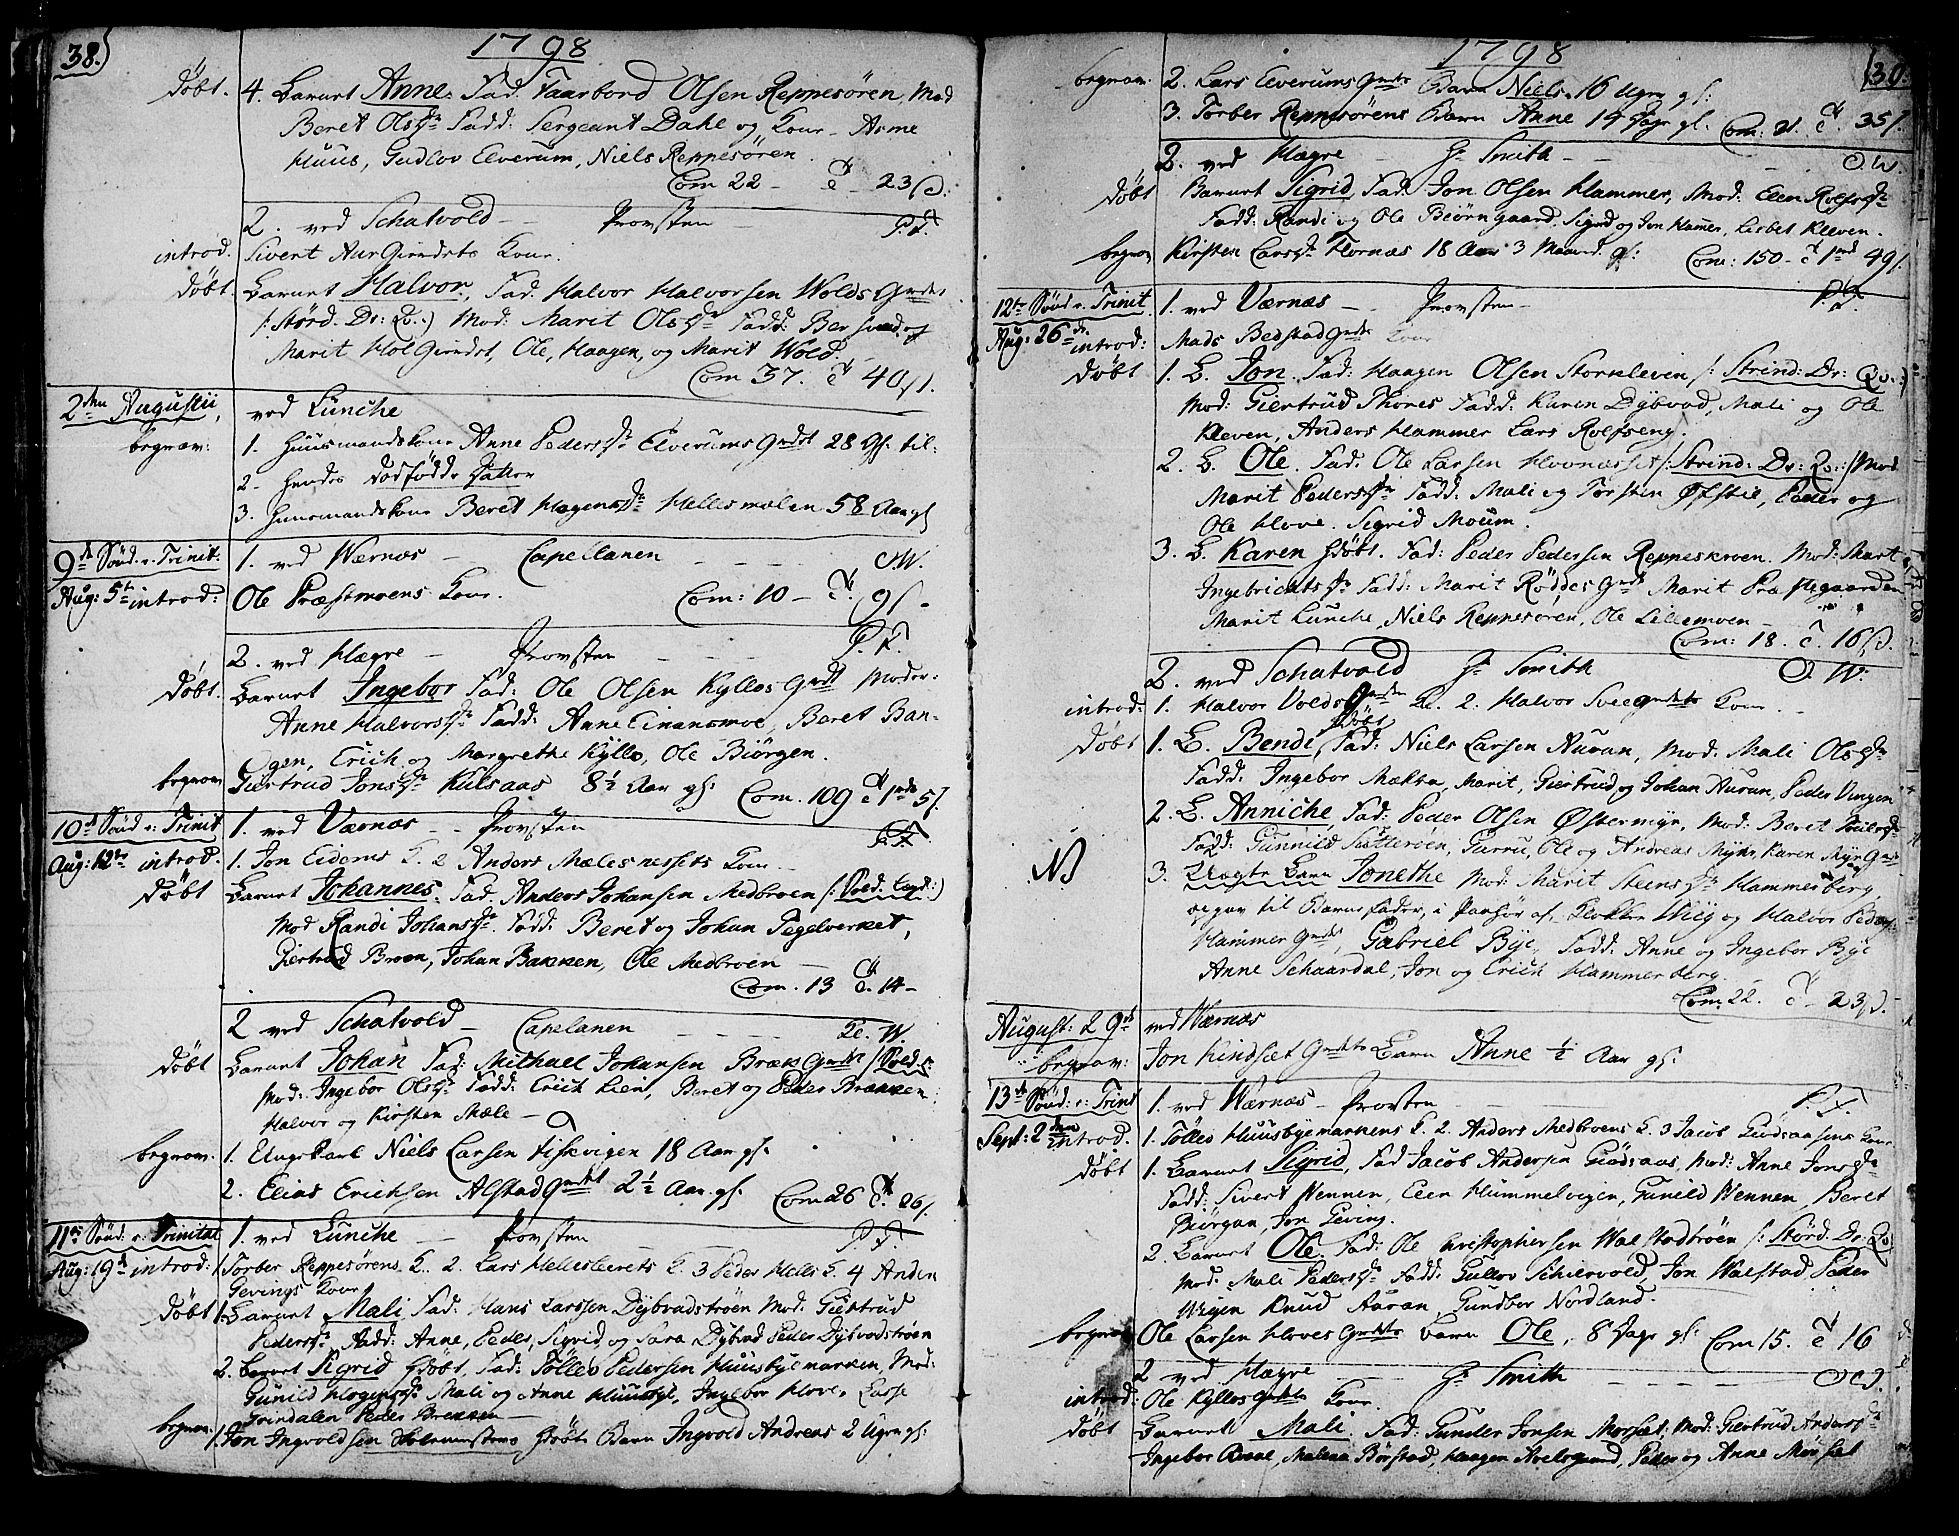 38.)
1798
døbt. 4. Barnet Anne. Fad. Taarbord Olsen Reppesören, Mod
Beret Olsdr Fadd: Sergeant Dahl og Kone - Arne
Huus, Gudlov Elverum, Niels Reppesören.
Com 22 - 23 s.
2. ved Schatvold - Provsten - P.F.
introd. Sivert Kone.
døbt Barnet Halvor, Fad. Halvor Halvorsen Wolds
/: Störd. Dr: Qv:) Mod: Marit Olsdr Fadd: Ber og
Marit, Ole, Haagen, og Marit Wold.
Com 37. 40 s.
2den Augustii, ved Lunche
begrav: 1. Huusmandskone Anne Pedersdr Elverums 28 til:
2. hendes dødfødde datter
3. Huusmandskone Beret Hagensdr Hellesmelen 58 Aar gl
9d Sönd. e. Trinit. 1. ved Wærnæs - Capellanen - O.W.
Aug: 5te introd: Ole Præstmoens Kone. Com: 10 - 9 s.
2. ved Hægre - Provsten - P.F.
døbt. Barnet Ingebor Fad: Ole Olsen Kyllos Moder:
Anne Halvorsdr Fadd: Anne Einansmoe, Beret Ban-
gen, Erich og Margrethe Kyllo, Ole Biörgen.
begrav Giertrud Jonsdr Kulsaas 8½ Aar gl: Com. 109 1 5 s.
10d Sönd e: Trinit 1. ved Værnæs - Provsten P.F.
Aug: 12te introd. 1. Jon Eidems K. 2 Anders Mælesnessets Kone
døbt Barnet Johannes. Fad. Anders Johansen Medbroen
Mod Randi Johansdr. Fadd: Beret og Johan Tegelverket,
Giertrud Broen, Johan Bakken, Ole Medbroen -
Com. 13 14 -
2 ved Schatvold - Capelanen - W.
døbt Barnet Johan Fad: Michael Johansen
Mod: Ingebor Olsdr Fadd: Erich Lien, Beret og Peder Brækken
Halvor og Kirsten Mæle -
begrav. 1. Ungekarl Niels Larsen Fiskvigen 18 Aar gl.
2. Elias Erichsen Alstad 2½ Aar gl: Com 26 26 s.
11te Sönd: e: Trinitat 1. ved Lunche - Provsten P.F.
Aug: 19d introd: 1 Torber Reppesörens K. 2. Lars K. 3 Peder Hells K. 4 Anders
Gevings Kone
døbt 1. Barnet Mali Fad: Hans Larssen Dybvadstrøen Mod: Giertrud
Pedersdr Fadd: Anne, Peder, Sigrid, og Sara Dybvad Peder Dybvadstrøen
2. Barnet Sigrid hdøbt, Fad: Tölleo Pedersen Huusbyemarken, Mod:
Gunild Hogensdr Mali og Anne Huusbye, Ingebor Hove, Lasse
Grindalen Peder Brekken -
begrav: 1. Jon Ingvoldsen hdøbt Barn Ingvold Andreas 2 Ugr gl:
1798
(39.
begrav: 2. Lars Elverums Barn Niels 16 Ugr gl:
3. Torber Reppesörens Barn Anne 14 Dage gl. Com: 35 s.
2. ved Hægre - Hr Smith - O.W.
døbt Barnet Sigrid Fad: Jon Olsen Hammer, Mod: Elen Rolfsdr
Fadd: Randi og Ole Biörngaard Sigrid og Jon Hamer, Lisbet Kleven.
begrav Kirsten Larsdr Hornæs 18 Aar 3 Maand. gl: Com: 150 - 1 49 s.
12te Sönd e. Trinit 1. ved Værnæs - Provsten - P.F.
Aug: 26de introd: Mads Bedstad Kone
døbt 1. B. Jon Fad: Haagen Olsen Storkleven /: Strind: Dr: Qv:)
Mod: Giertrud Thores Fadd: Karen Dybvad, Mali og Ole
Kleven, Anders Hammer Lars Rolfseng.
2. B. Ole. Fad: Ole Larsen /: Strind: Dr: Qv: / Mod
Marit Pedersdr Fadd: Mali og Torsten Øfstie, Peder og
Ole Hove. Sigrid Moum.
3. B. Karen hdøbt. Fad: Peder Pedersen Reppeskroen. Mod: Marit
Ingebrichtsdr Fadd: Marit Röddes Marit Præstegaarden
Marit Lunche, Niels Reppesören, Ole Lillemoen -
Com: 18. 16 s.
2. ved Schatvold Hr Smith O.W.
introd: 1. Halvor Volds K. 2. Halvor Kone
døbt 1. B. Bendi, Fad: Niels Larsen Auran, Mod: Mali Olsdr
Fadd: Ingebor Mækta, Marit, Giertrud og Johan Auran, Peder Vingen
2. B. Anniche Fad: Peder Olsen Østermyr, Mod: Beret
Fadd: Gunnild, Gurru, Ole og Andreas Myhr, Karen Myr
NB 3. Uægte Barn Jonethe Mod: Marit Steensdr Hammersberg,
og gav til Barnefader, i af Klokker og Halvor
Hammer, Gabriel Bye, Fadd: Anne og Ingebor Bye
Anne Schaardal, Jon og Erich Hammerberg.
Com: 22. 23 s.
August: 29d ved Wærnæs
begrav: Jon Kindsæt Barn Anne ½ Aar gl:
13d Sönd: e: Trinit 1. ved Wærnæs - Provsten - P.F.
Sept: 2den introd. 1. Tölleo Huusbyemarkens K. 2. Anders Medbroens K. 3 Jacob Kone
døbt 1. Barnet Sigrid, Fad Jacob Andersen, Mod: Anne Jonsdr
Fadd: Sivert Wennen, Elen Hummelvigen, Gunild Wennen, Beret
Biörgan, Jon Geving.
2. Barnet Ole. Fad: Ole Christophersen Walstadtrøen /: Störd. Dr. Qv
Mod: Mali Pedersdr Fadd: Gullov Schiervold, Jon Walstad Peder
Knud Auran, Gundbor Nordland.
begrav Ole Larsen Hoves barn Ole, 8 Dage gl: Com 15. 16
2 ved Hægre - Hr Smith -
introd: Ole Kyllos Kone.
døbt Barnet Mali. Fad: Gunder Jonsen Morset, Mod: Giertrud Andersdr
Ingebor, Malena Börstad, Haagen, Peder og Anne Morset